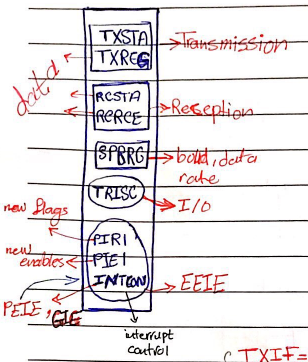 TXSTA
TXREG
Transmission
data
RCSTA
RCRCE
Reception
SPBRG
baud, data
rate
TRISC
I/O
new flags
PIR1
new
enables
PIE1
INTCON
PEIE, GIE
EEIE
interrupt
control
TXIF=